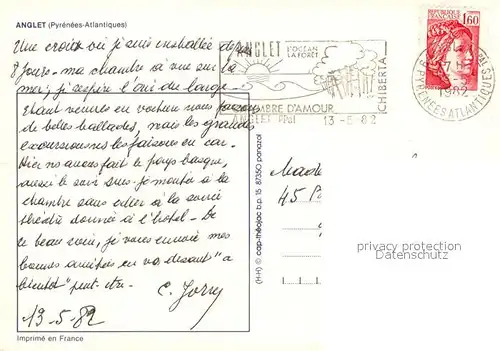 ANGLET (Pyrénées-Atlantiques)
Une croix où je suis installée depuis
8 jours - ma chambre à vue sur la
mer, je respire l'air du large.
Etant venues en voiture nous faisons
de belles ballades, mais les grandes
excursions nous les faisons en car.
Hier nous avons fait le pays basque,
aussi le soir suis-je montée à la
chambre sans aller à la soirée
théâtre donnée à l'hôtel - De
ce beau coin, je vous envoie mes
bonnes amitiés en vous disant "à
bientôt" peut-être.
C. Jorry
13-5-82
Imprimé en France
ANGLET L'OCEAN
LA FORET
CHIBERTA
CHAMBRE D'AMOUR
ANGLET Ppal 13-5-82
REPUBLIQUE
FRANÇAISE 1,60
PYRENEES ATLANTIQUES
1982
(HH) © cap-théojac b.p. 15 87350 panazol
45
privacy protection
Datenschutz